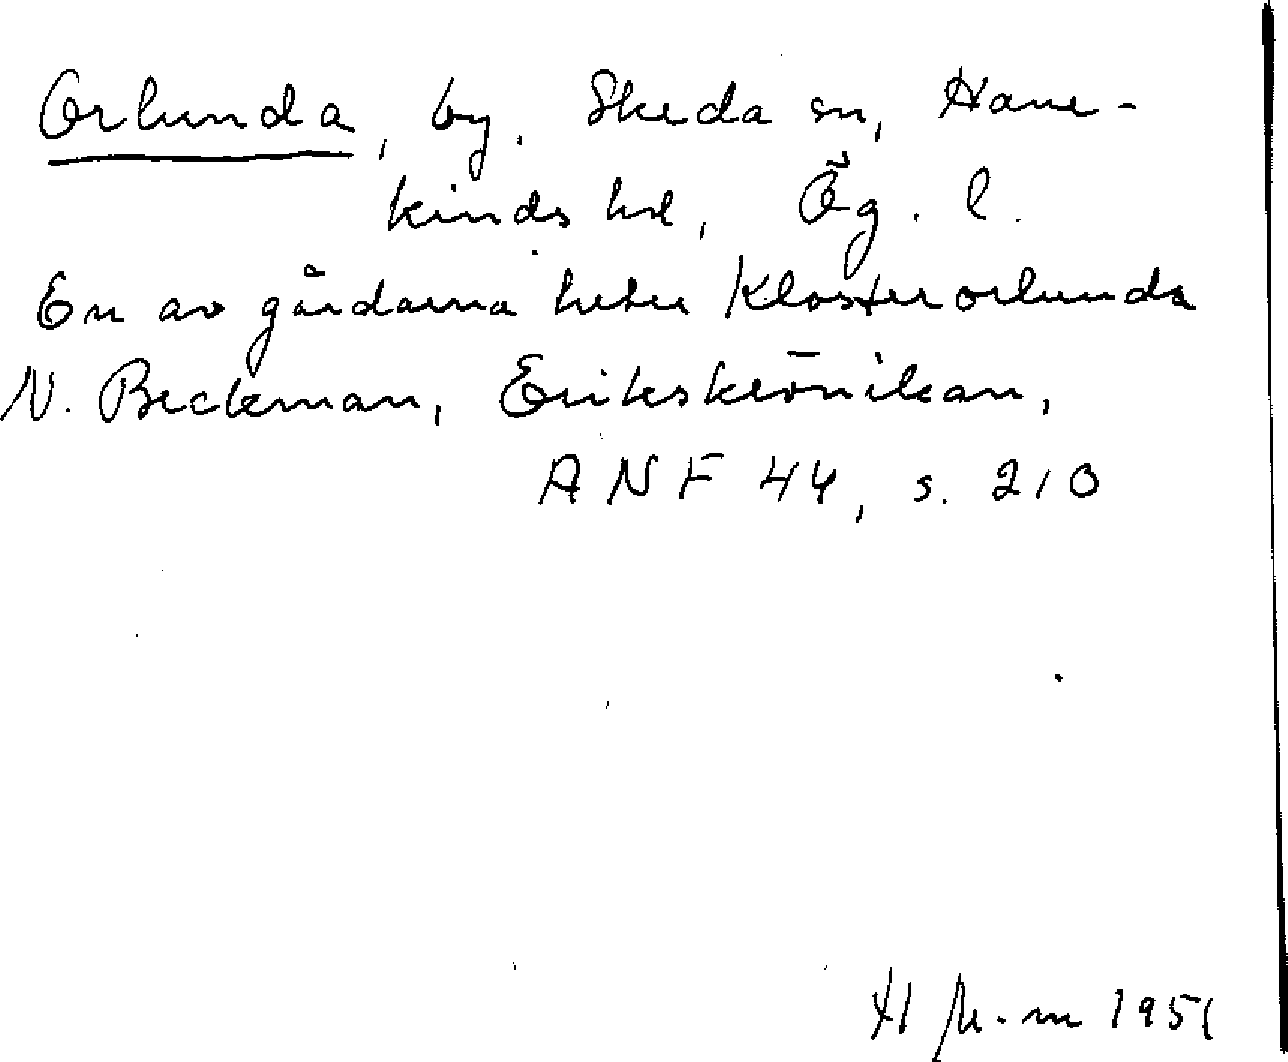 Orlunda, by. Skeda sn, Hane-
kinds hd, Ög. l.
En av gårdarna heter Klosterorlunda
N. Beckman, Erikskrönikan,
ANF 44, s. 210
H M-m 1951